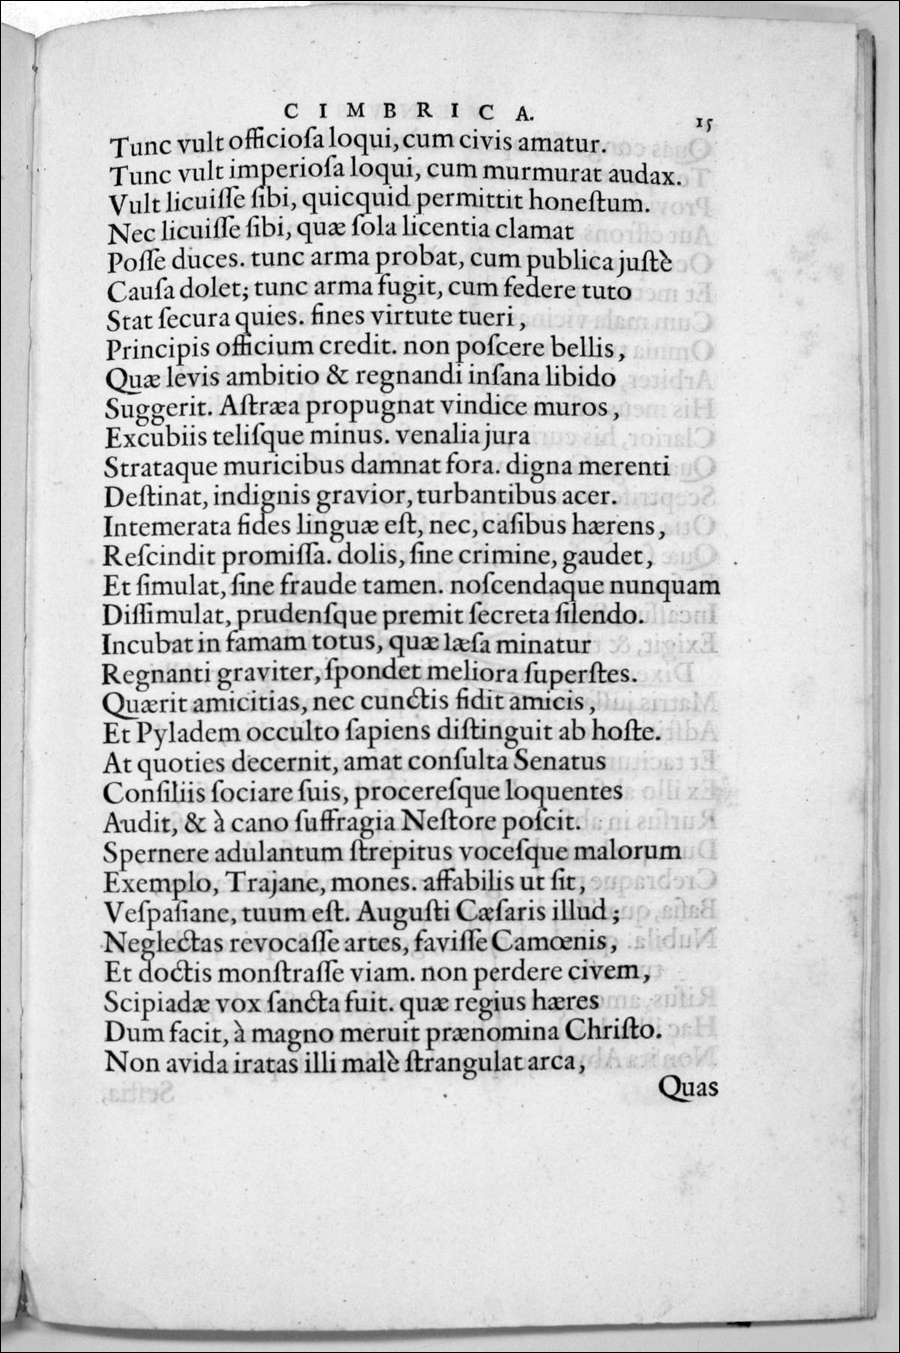 CIMBRICA.
15
Tunc vult officioſa loqui, cum civis amatur.
Tunc vult imperioſa loqui, cum murmurat audax.
Vult licuiſſe ſibi, quicquid permittit honeſtum.
Nec licuiſſe ſibi, quæ ſola licentia clamat
Poſſe duces. tunc arma probat, cum publica juſtè
Cauſa dolet; tunc arma fugit, cum federe tuto
Stat ſecura quies. fines virtute tueri,
Principis officium credit. non poſcere bellis,
Quæ levis ambitio & regnandi inſana libido
Suggerit. Aſtræa propugnat vindice muros,
Excubiis teliſque minus. venalia jura
Strataque muricibus damnat fora. digna merenti
Deſtinat, indignis gravior, turbantibus acer.
Intemerata fides linguæ eſt, nec, caſibus hærens,
Reſcindit promiſſa. dolis, ſine crimine, gaudet,
Et ſimulat, ſine fraude tamen. noſcendaque nunquam
Diſſimulat, prudenſque premit ſecreta ſilendo.
Incubat in famam totus, quæ læſa minatur
Regnanti graviter, ſpondet meliora ſuperſtes.
Quærit amicitias, nec cunctis fidit amicis,
Et Pyladem occulto ſapiens diſtinguit ab hoſte.
At quoties decernit, amat conſulta Senatus
Conſiliis ſociare ſuis, procereſque loquentes
Audit, & à cano ſuffragia Neſtore poſcit.
Spernere adulantum ſtrepitus voceſque malorum
Exemplo, Trajane, mones. affabilis ut ſit,
Veſpaſiane, tuum eſt. Auguſti Cæſaris illud;
Neglectas revocaſſe artes, faviſſe Camœnis,
Et doctis monſtraſſe viam. non perdere civem,
Scipiadæ vox ſancta fuit. quæ regius hæres
Dum facit, à magno meruit prænomina Chriſto.
Non avida iratas illi malè ſtrangulat arca,
Quas